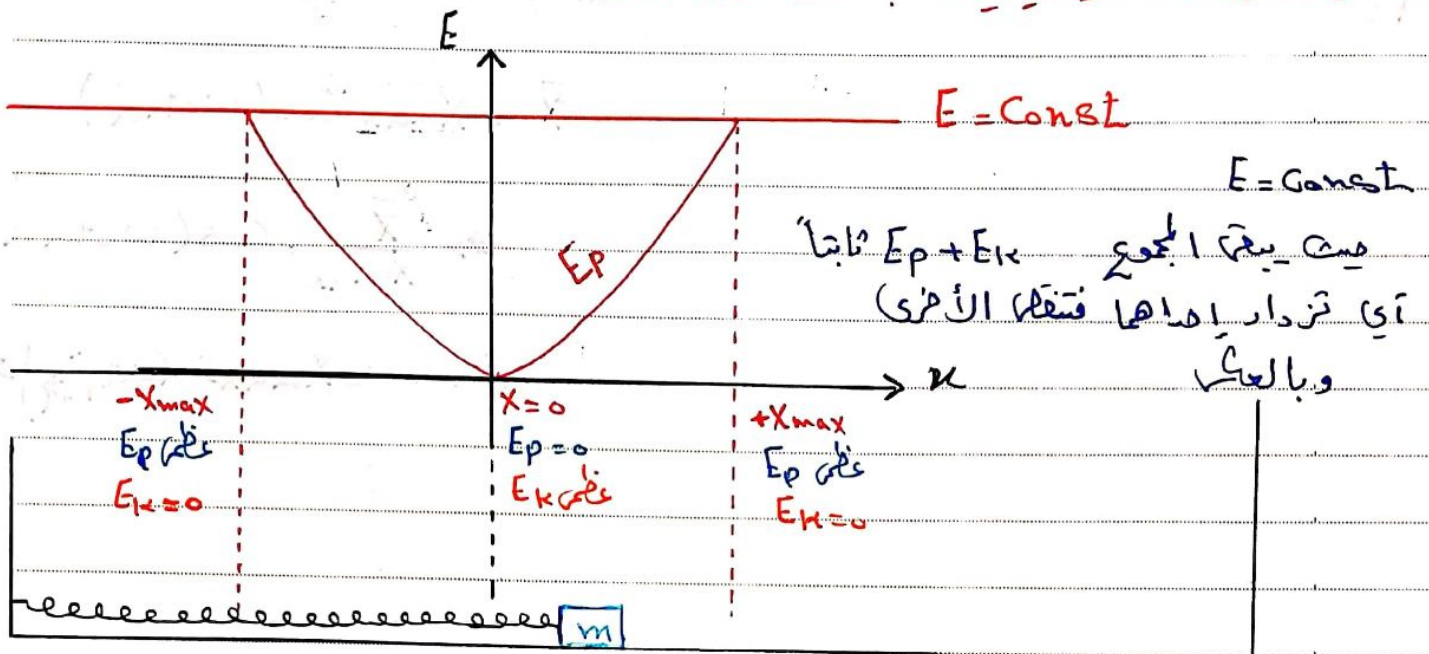 E
E = Const
E = Const
حيث يبقى المجموع Ep + Ek ثابتاً
أي تزداد إحداهما فتنقص الأخرى
وبالعكس
Ep
x
-Xmax
Ep عظمى
Ek = 0
X = 0
Ep = 0
Ek عظمى
+Xmax
Ep عظمى
Ek = 0
m